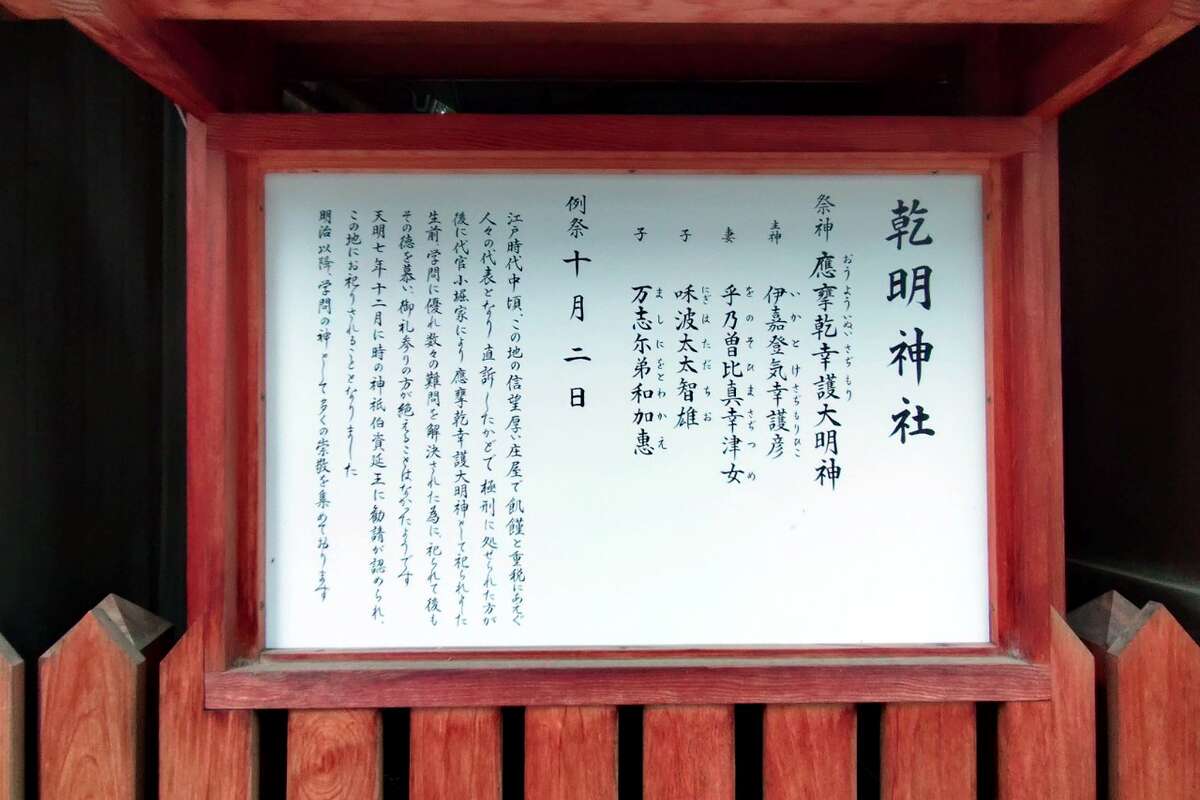 乾明神社
祭神 應孽乾幸護大明神
おうよういぬいさぢもり
主神 伊嘉登気幸護彦
いかとけさぢもりひこ
妻 乎乃曽比真幸津女
をのそひまさぢつめ
子 味波太太智雄
にぎはただちお
子 万志尓弟和加惠
ましにをとわかえ
例祭 十月二日
江戸時代中頃、この地の信望厚い庄屋で飢饉と重税にあえぐ
人々の代表となり直訴したかどで極刑に処せられた方が
後に代官小堀家により應孽乾幸護大明神として祀られました
生前、学問に優れ数々の難問を解決された為に、祀られて後も
その徳を慕い、御礼参りの方が絶えることはなかったようです
天明七年十二月に時の神祇伯資延王に勧請が認められ、
この地にお祀りされることとなりました
明治以降、学問の神として多くの崇敬を集めております